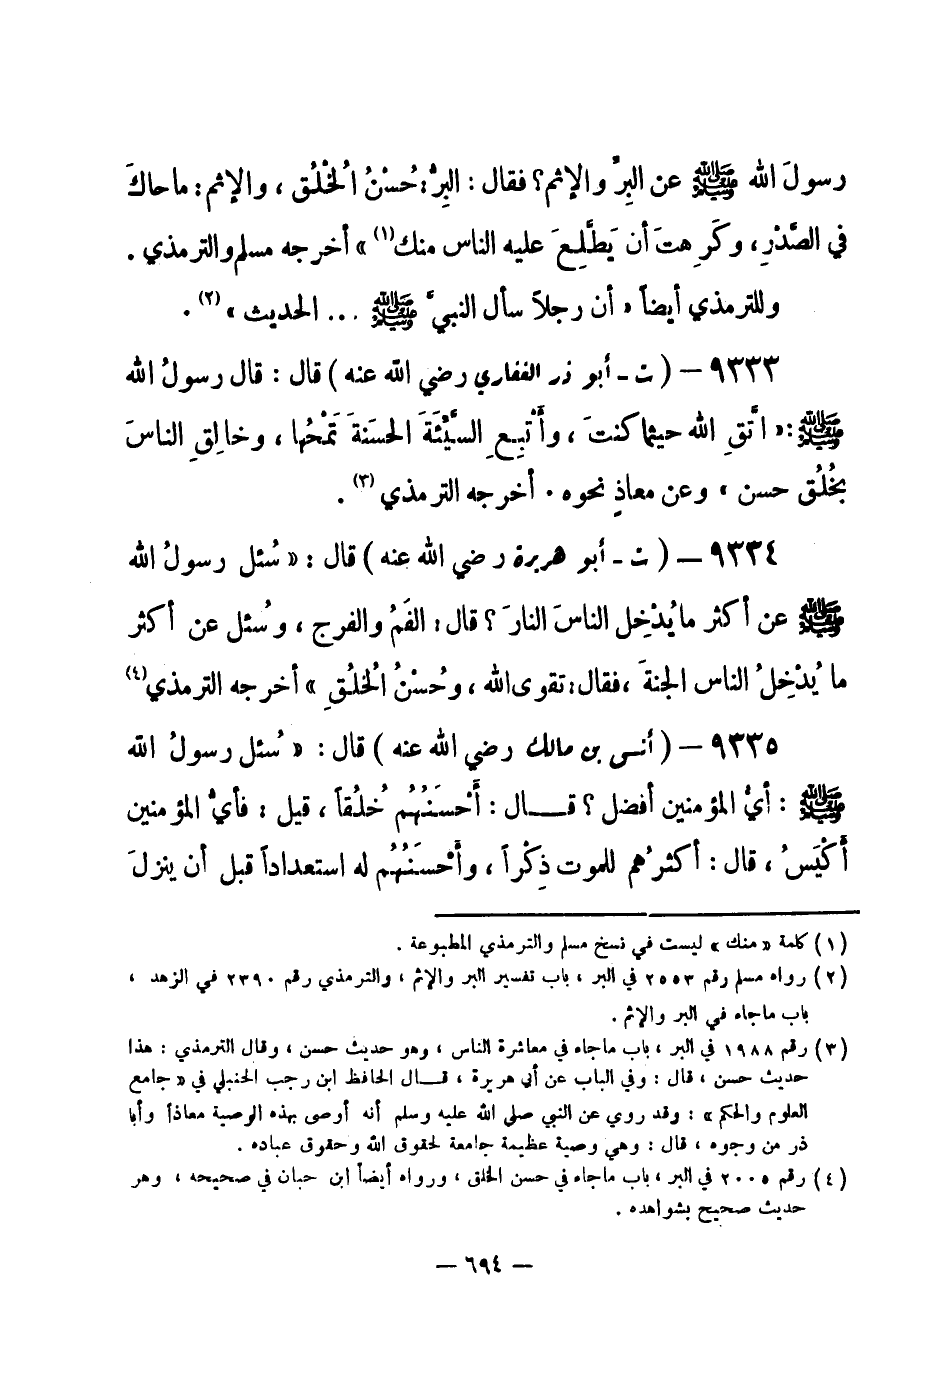 رسولَ الله ﷺ عن البِرِّ والإثم؟ فقال : البِرُّ: حُسْنُ الخُلُق ، والإثم: ما حاكَ
في الصَّدْرِ ، وكَرِهتَ أن يَطَّلِعَ عليه الناس منك(١) » أخرجه مسلم والترمذي .
وللترمذي أيضاً « أن رجلاً سأل النبيَّ ﷺ ... الحديث » (٢) .
٩٣٣٣ – ( ت - أبو ذر الغفاري رضي الله عنه ) قال : قال رسولُ الله
ﷺ :« اتَّقِ الله حيثما كنتَ ، وأَتْبِعِ السَّيِّئَةَ الحسَنةَ تَمْحُها ، وخالِقِ الناسَ
بخُلُق حسن » وعن معاذٍ نحوه . أخرجه الترمذي (٣) .
٩٣٣٤ – ( ت - أبو هريرة رضي الله عنه ) قال : « سُئل رسولُ الله
ﷺ عن أكثر ما يُدْخِل الناسَ النارَ ؟ قال : الفَمُ والفرج ، وسُئل عن أكثر
ما يُدْخِلُ الناس الجنةَ ، فقال : تقوى الله ، وحُسْنُ الخُلُقِ » أخرجه الترمذي(٤)
٩٣٣٥ – ( أنس بن مالك رضي الله عنه ) قال : « سُئل رسولُ الله
ﷺ : أيُّ المؤمنين أفضل ؟ قـــال : أَحْسَنُهُم خُلُقاً ، قيل : فأيُّ المؤمنين
أَكْيَسُ ، قال : أكثرُهم للموت ذِكْراً ، وأَحْسَنُهُم له استعداداً قبل أن ينزلَ
(١) كلمة « منك » ليست في نسخ مسلم والترمذي المطبوعة .
(٢) رواه مسلم رقم ٢٥٥٣ في البر ، باب تفسير البر والإثم ، والترمذي رقم ٢٣٩٠ في الزهد ،
باب ماجاء في البر والإثم .
(٣) رقم ١٩٨٨ في البر ، باب ماجاء في معاشرة الناس ، وهو حديث حسن ، وقال الترمذي : هذا
حديث حسن ، قال : وفي الباب عن أبي هريرة ، قـــال الحافظ ابن رجب الحنبلي في « جامع
العلوم والحكم » : وقد روي عن النبي صلى الله عليه وسلم أنه أوصى بهذه الوصية معاذاً وأبا
ذر من وجوه ، قال : وهي وصية عظيمة جامعة لحقوق الله وحقوق عباده .
(٤) رقم ٢٠٠٥ في البر ، باب ماجاء في حسن الخلق ، ورواه أيضاً ابن حبان في صحيحه ، وهو
حديث صحيح بشواهده .
– ٦٩٤ –